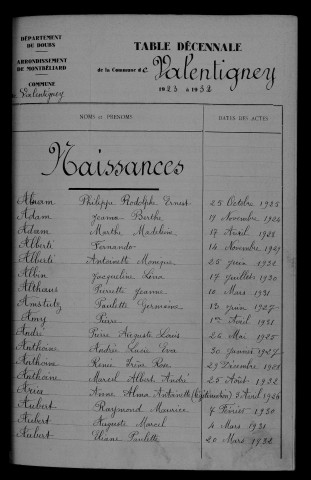 DÉPARTEMENT
DU DOUBS
ARRONDISSEMENT
DE MONTBÉLIARD
COMMUNE
de Valentigney
TABLE DÉCENNALE
de la Commune de Valentigney
1923 à 1932
NOMS et PRÉNOMS DATES DES ACTES
Naissances
Philippe Rodolphe Ernest 25 Octobre 1925
Adam Jeanne Berthe 17 Novembre 1926
Adam Marthe Madeleine 17 Avril 1928
Alberti Fernando 14 Novembre 1929
Alberti Antoinette Monique 25 Juin 1932
Albin Jacqueline 17 Juillet 1930
Althaus Pierrette Jeanne 10 Mars 1931
Amstutz Paulette Germaine 13 Juin 1927
Amy Pierre 1er Avril 1931
André Pierre Auguste Louis 26 Mai 1925
Anthoine Andrée Lucie Eva 30 Janvier 1927
Anthoine Renée Irène Rose 29 Décembre 1928
Anthoine Marcel Albert André 25 Août 1932
Anne Alma Antoinette 5 Avril 1926
Aubert Raymond Maurice 7 Février 1930
Aubert Auguste Marcel 4 Mars 1931
Aubert Liliane Paulette 20 Mars 1932